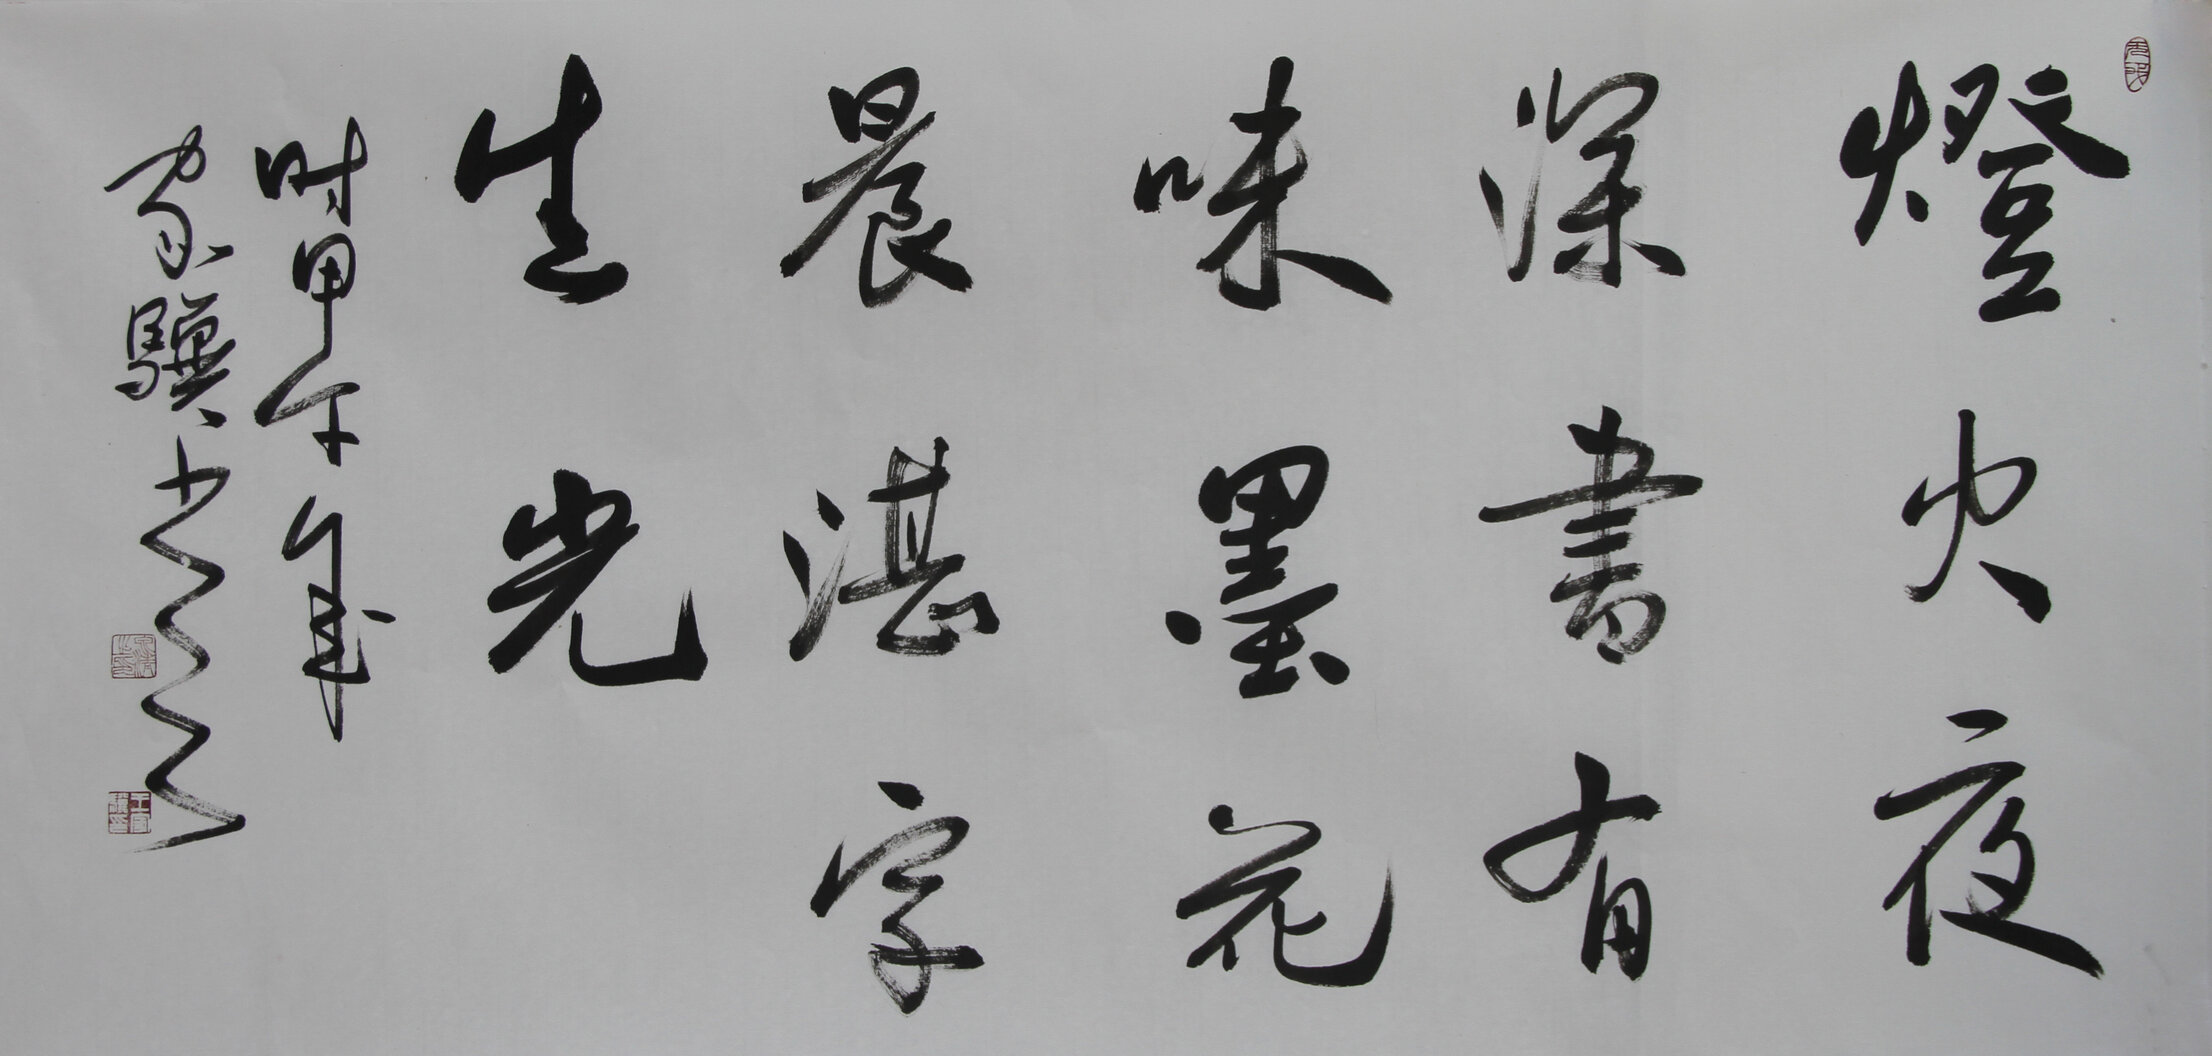 燈火夜
深書有
味墨花
晨湛字
生光
时甲午年
家驥书